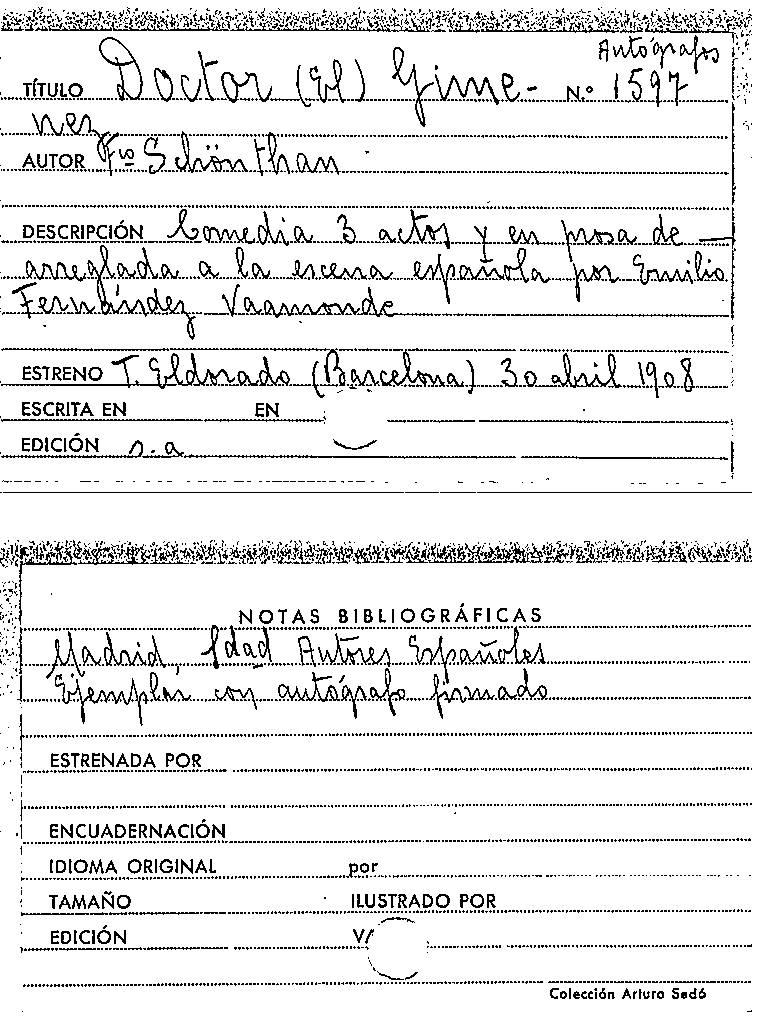 Autógrafos
TÍTULO Doctor (El) Gime- N.º 1597
nez
AUTOR Fco Schönthan
DESCRIPCIÓN Comedia 3 actos y en prosa de —
arreglada a la escena española por Emilio
Fernández Vaamonde
ESTRENO T. Eldorado (Barcelona) 30 abril 1908
ESCRITA EN EN
EDICIÓN s.a
NOTAS BIBLIOGRÁFICAS
Madrid, Sdad Autores Españoles
Ejemplar con autógrafo firmado
ESTRENADA POR
ENCUADERNACIÓN
IDIOMA ORIGINAL por
TAMAÑO ILUSTRADO POR
EDICIÓN
Colección Arturo Sedó